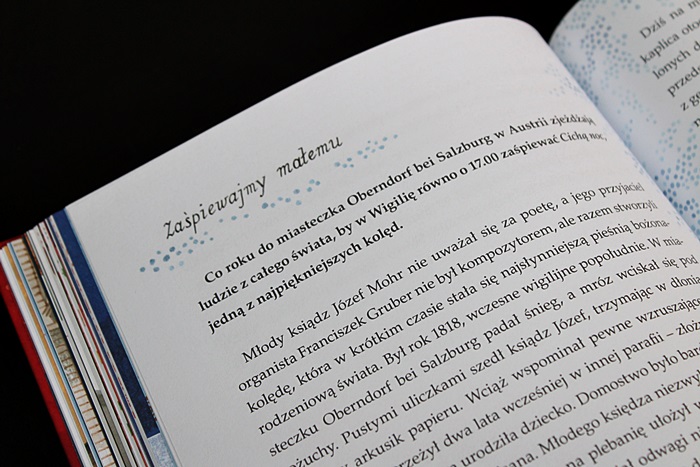 zaśpiewajmy małemu
Co roku do miasteczka Oberndorf bei Salzburg w Austrii zjeżdżają
ludzie z całego świata, by w Wigilię równo o 17.00 zaśpiewać Cichą noc,
jedną z najpiękniejszych kolęd.
Młody ksiądz Józef Mohr nie uważał się za poetę, a jego przyjaciel
organista Franciszek Gruber nie był kompozytorem, ale razem stworzyli
kolędę, która w krótkim czasie stała się najsłynniejszą pieśnią bożona-
rodzeniową świata. Był rok 1818, wczesne wigilijne popołudnie. W mia-
steczku Oberndorf bei Salzburg padał śnieg, a mróz wciskał się pod
żuchy. Pustymi uliczkami szedł ksiądz Józef, trzymając w dłonia
arkusik papieru. Wciąż wspominał pewne wzruszające
przeżył dwa lata wcześniej w innej parafii – złożo
urodziła dziecko. Domostwo było bard
ana. Młodego księdza niezwy
na plebanię ułożył
odwagi
Dziś na m
kaplica oto
lonych d
przeds
z ge